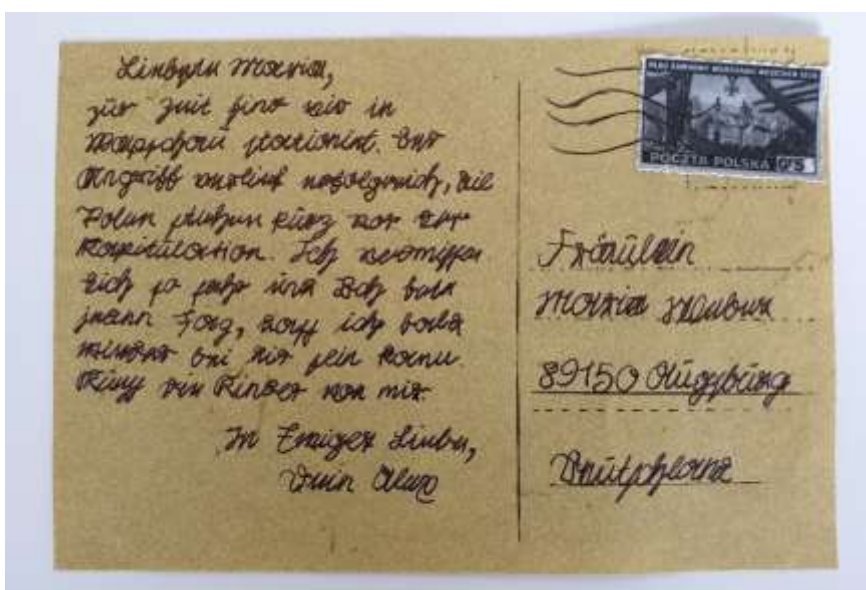 Liebste Maria,
zur Zeit sind wir in
Warschau stationiert. Der
Angriff verlief erfolgreich, die
Polen stehen kurz vor der
Kapitulation. Ich vermisse
dich so sehr und Ich bete
jeden Tag, dass ich bald
wieder bei dir sein kann.
Küss die Kinder von mir.
In Ewiger Liebe,
Dein Alex
POCZTA POLSKA
Fräulein
Maria
89150 Augsburg
Deutschland